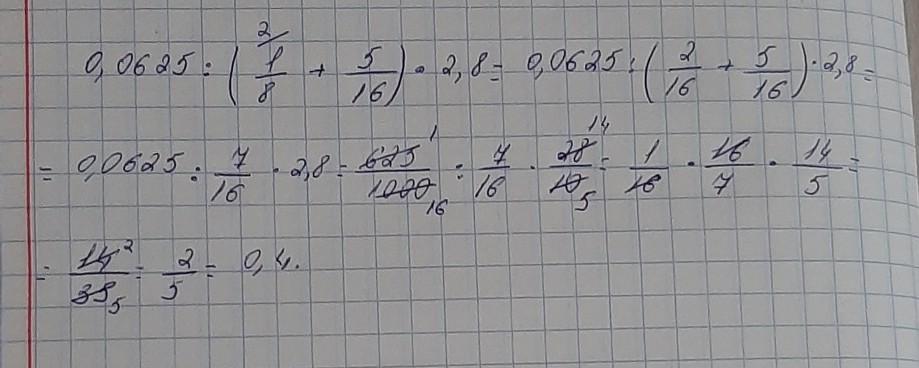 0,0625 : (1/8 + 5/16) · 2,8 = 0,0625 : (2/16 + 5/16) · 2,8 =
= 0,0625 : 7/16 · 2,8 = 625/1000 : 7/16 · 28/10 = 1/16 · 16/7 · 14/5 =
= 14/35 = 2/5 = 0,4.